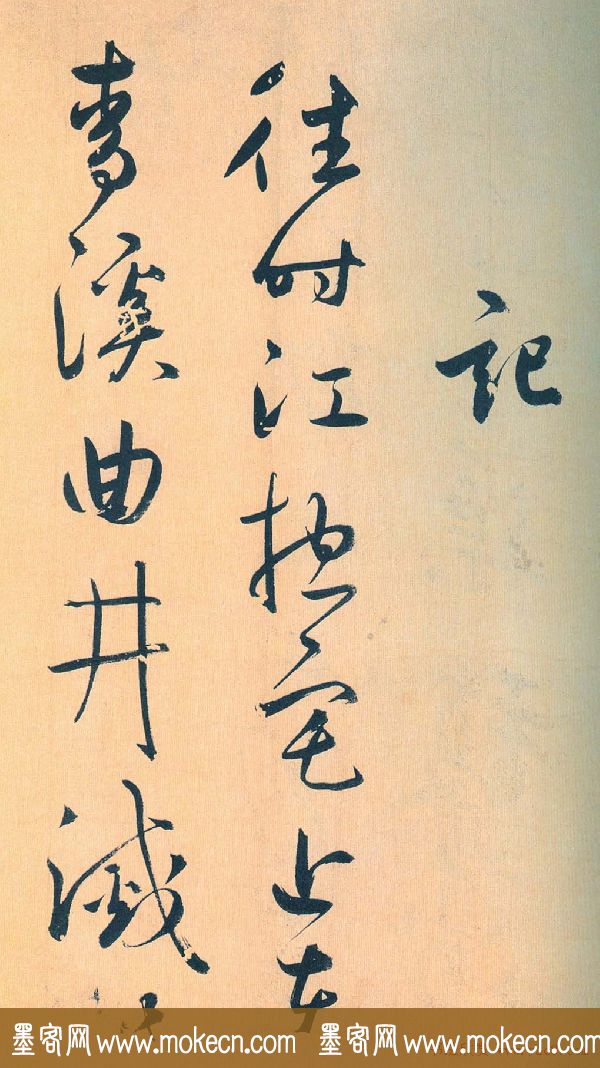 記
往時江揔宅止在
青溪曲井滅
墨客网 www.mokecn.com 墨客网 www.mokecn.com